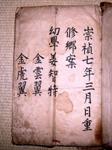 崇禎七年三月日重
修鄉案
幼學姜智特
金雲翼
金虎翼